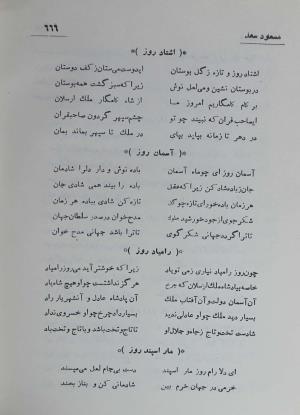 مسعود سعد ۶۶۶
*( اشتاد روز )*
اشتاد روز و تازه ز گل بوستان ایدوست می‌ستان ز کف دوستان
در بوستان نشین و می لعل نوش زیرا که سبز گشت همه بوستان
بر کام کامگاریم امروز ما از شاه کامگار ملک ارسلان
ایصاحب قران که نبیند چو تو چشم سپهر گردون صاحبقران
در دهر تا زمانه بپاید بپای در ملک تا سپهر بماند بمان
*( آسمان روز )*
آسمان روز ای چو ماه آسمان باده نوش و دار دلرا شادمان
جان ز باده شاد کن زیرا که عقل باده را بیند همی شادی جان
هر زمان باده خور ای تازه چو گل تازه کن شادی بباده هر زمان
شکر جوی از جود خورشید ملوک مدح خوان در صدر سلطان جهان
تا ترا گردد جهانی شکر گوی تا ترا باشد جهانی مدح خوان
*( رامیاد روز )*
چون روز رامیاد نیاری ز می تو یاد زیرا که خوشتر آید می روز رامیاد
خاصه بیاد شاه ملک ارسلان که چرخ هرگز نداشتست چو او هیچ شاه یاد
آن آسمان دولت و آن آفتاب ملک آن پادشاه عادل و آن شهریار راد
بسیار دید ملک چو او عادلی ندید بسیار داد چرخ چو او خسروی نداد
شادست تخت و تاج ز جاه و جلال او تا تاج و تخت باشد با تاج و تخت باد
*( مار اسپند روز )*
ای دلا رام روز مار اسپند دست بی جام لعل می مپسند
خرمی در جهان خرم بین شادمانی کن و بناز بخند